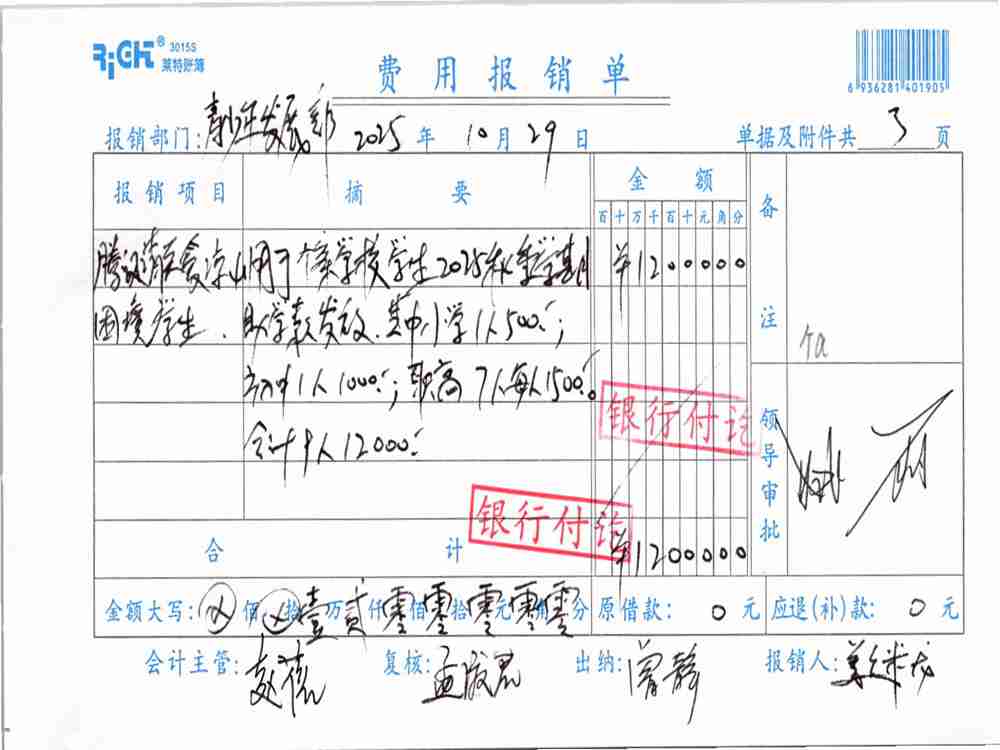 RiCH® 3015S
莱特账簿
费用报销单
6 936281 401905
报销部门: 青少年发展部 2025 年 10 月 29 日 单据及附件共 3 页
报销项目 摘要 金额 备注
百 十 万 千 百 十 元 角 分
腾讯 爱 凉山 用于 学校学生2025秋季学期 ¥1200000
困境学生 助学款发放.其中小学1人500.;
初中1人1000.;职高7人每人1500.。
合计9人12000.
银行付讫
银行付讫
领导审批
合计 ¥1200000
金额大写: 佰 拾壹万贰仟零佰零拾零元零角零分 原借款: 0 元 应退(补)款: 0 元
会计主管: 赵蓓 复核: 孟 君 出纳: 曾静 报销人: 姜